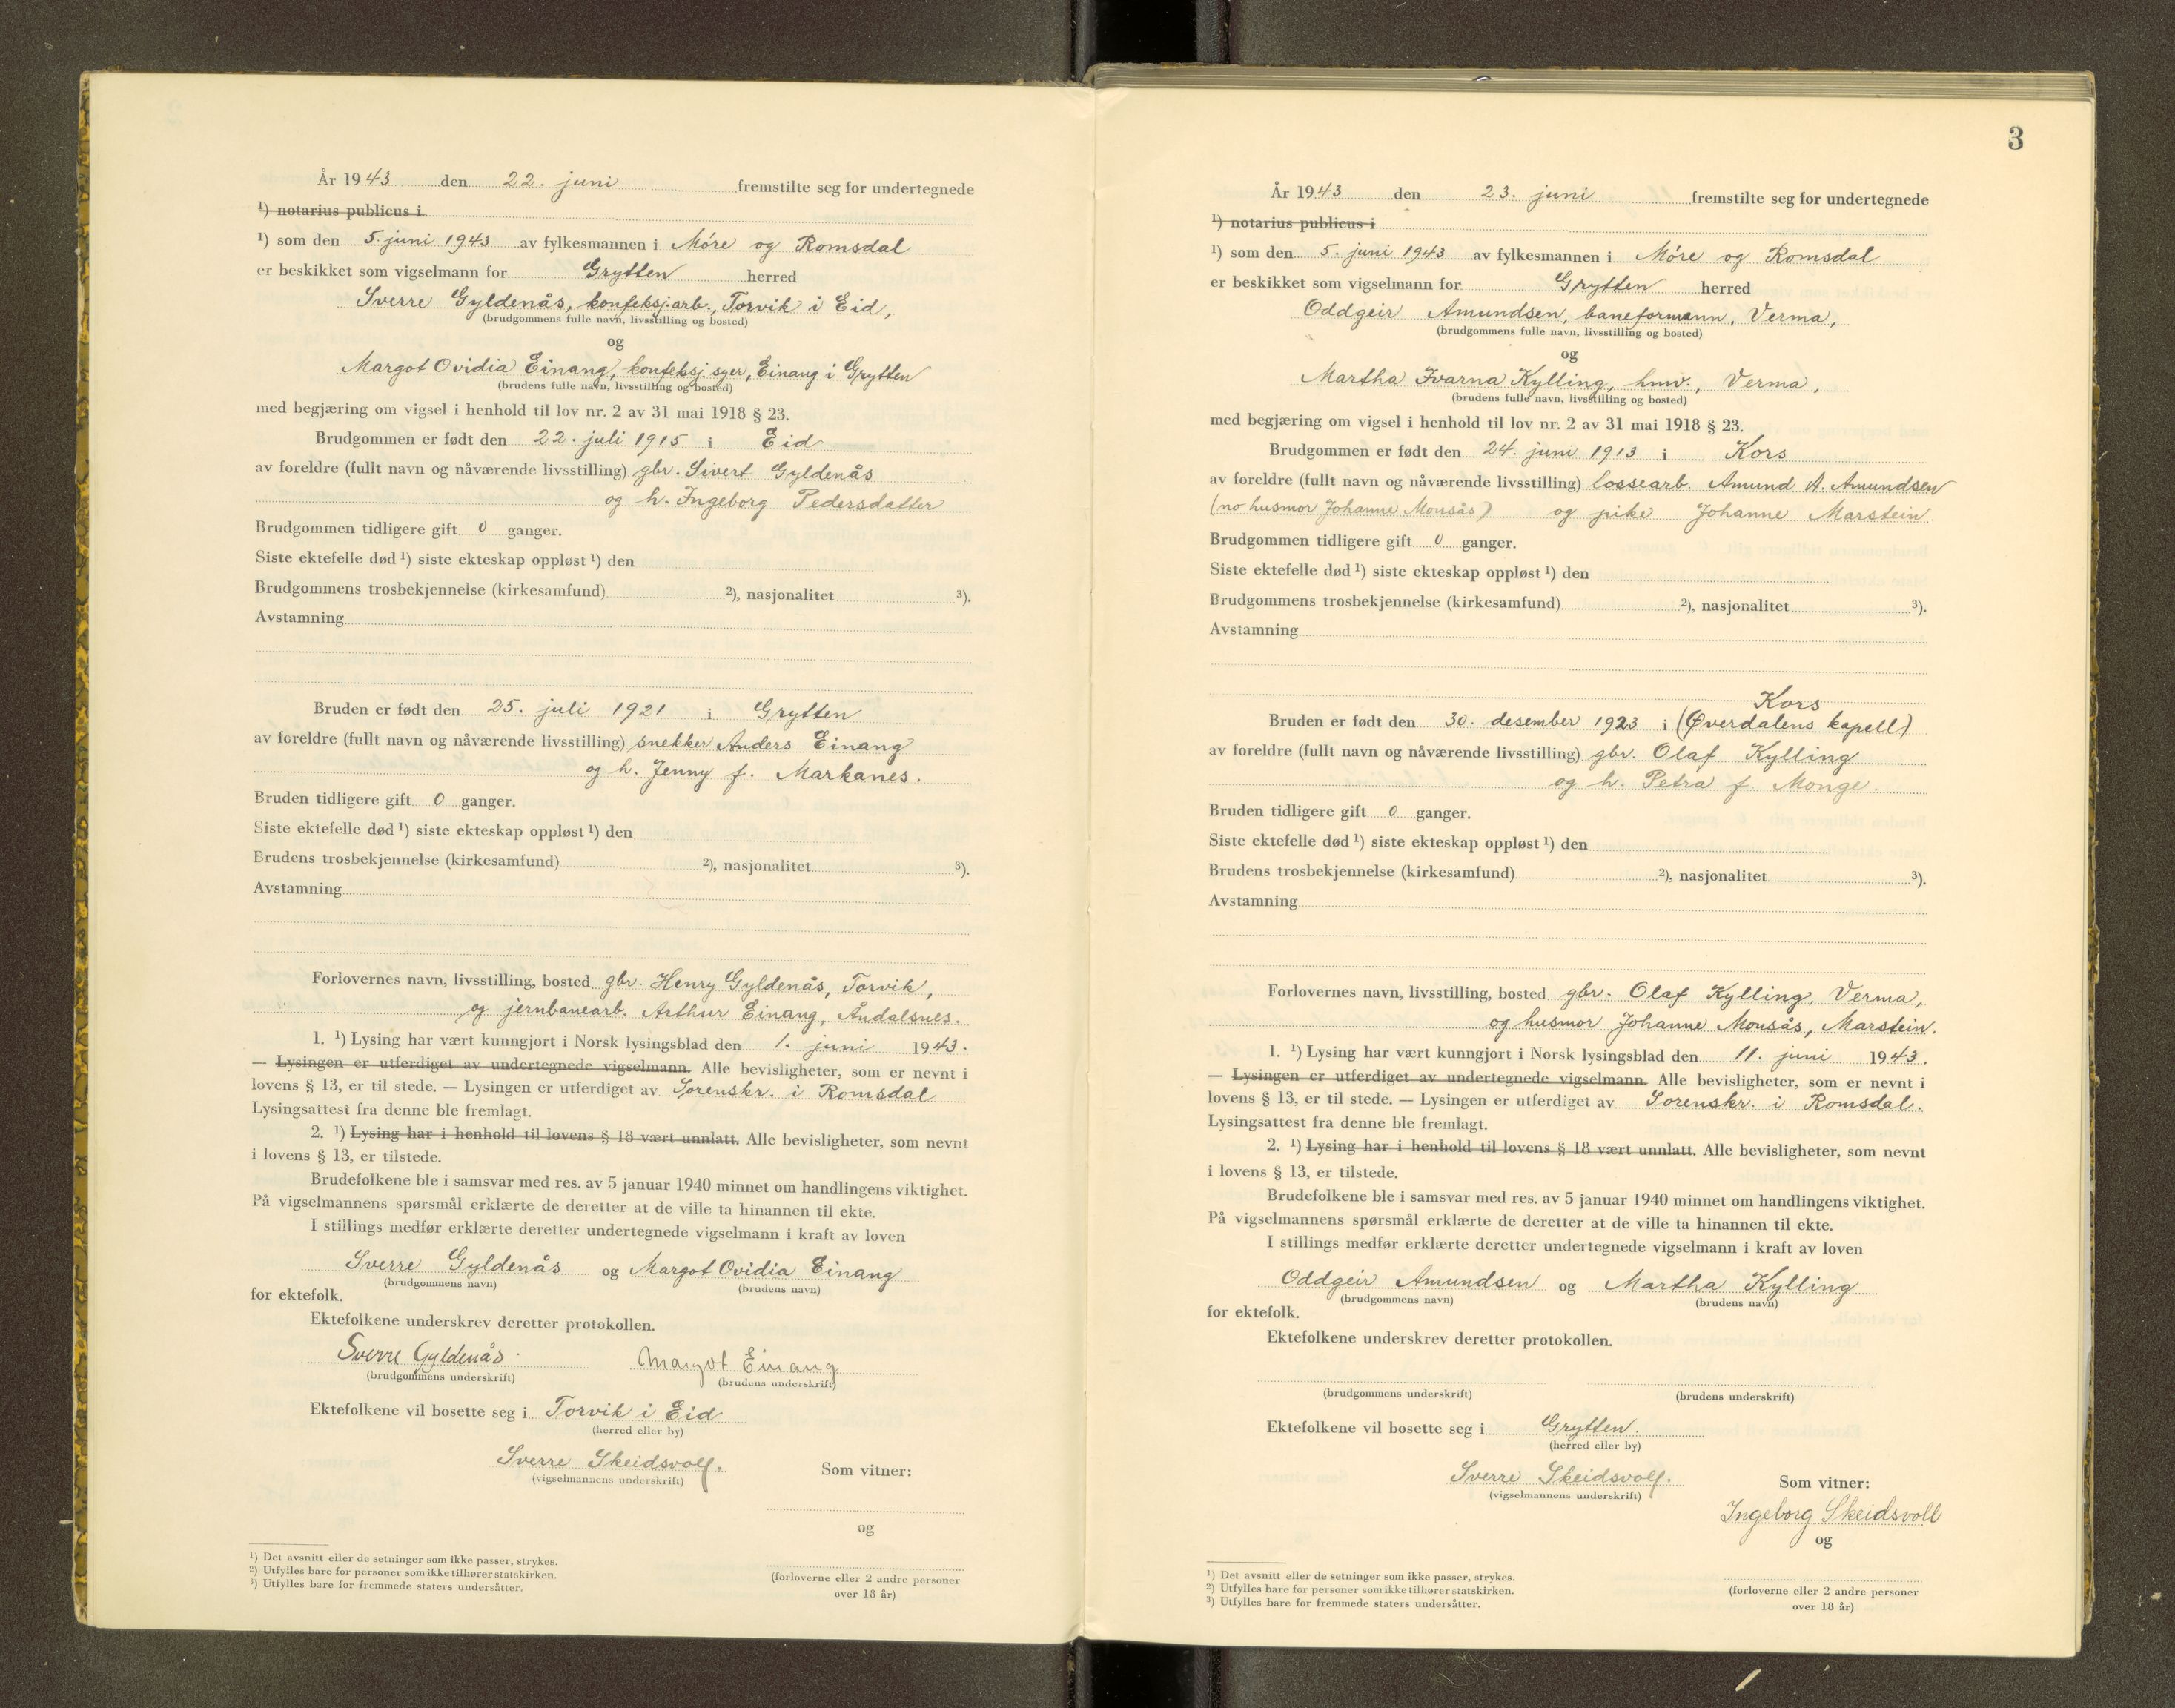 År 1943 den 22. juni fremstilte seg for undertegnede
¹) notarius publicus i
¹) som den 5. juni 1943 av fylkesmannen i Møre og Romsdal
er beskikket som vigselmann for Grytten herred
Sverre Gyldenås, konfeksj.arb., Torvik i Eid,
(brudgommens fulle navn, livsstilling og bosted)
og
Margot Ovidia Einang, konfeksj. syer, Einang i Grytten
(brudens fulle navn, livsstilling og bosted)
med begjæring om vigsel i henhold til lov nr. 2 av 31 mai 1918 § 23.
Brudgommen er født den 22. juli 1915 i Eid
av foreldre (fullt navn og nåværende livsstilling) gbr. Sivert Gyldenås
og h. Ingeborg Pedersdatter
Brudgommen tidligere gift 0 ganger.
Siste ektefelle død ¹) siste ekteskap oppløst ¹) den
Brudgommens trosbekjennelse (kirkesamfund) ²), nasjonalitet ³).
Avstamning
Bruden er født den 25. juli 1921 i Grytten
av foreldre (fullt navn og nåværende livsstilling) snekker Anders Einang
og h. Jenny f. Markanes.
Bruden tidligere gift 0 ganger.
Siste ektefelle død ¹) siste ekteskap oppløst ¹) den
Brudens trosbekjennelse (kirkesamfund) ²), nasjonalitet ³).
Avstamning
Forlovernes navn, livsstilling, bosted gbr. Henry Gyldenås, Torvik,
og jernbanearb. Arthur Einang, Åndalsnes.
1. ¹) Lysing har vært kunngjort i Norsk lysingsblad den 1. juni 1943.
— Lysingen er utferdiget av undertegnede vigselmann. Alle bevisligheter, som er nevnt i
lovens § 13, er til stede. — Lysingen er utferdiget av Sorenskr. i Romsdal
Lysingsattest fra denne ble fremlagt.
2. ¹) Lysing har i henhold til lovens § 18 vært unnlatt. Alle bevisligheter, som nevnt
i lovens § 13, er tilstede.
Brudefolkene ble i samsvar med res. av 5 januar 1940 minnet om handlingens viktighet.
På vigselmannens spørsmål erklærte de deretter at de ville ta hinannen til ekte.
I stillings medfør erklærte deretter undertegnede vigselmann i kraft av loven
Sverre Gyldenås og Margot Ovidia Einang
(brudgommens navn) (brudens navn)
for ektefolk.
Ektefolkene underskrev deretter protokollen.
Sverre Gyldenås. Margot Einang
(brudgommens underskrift) (brudens underskrift)
Ektefolkene vil bosette seg i Torvik i Eid
(herred eller by)
Sverre Skeidsvoll.
(vigselmannens underskrift)
Som vitner:
og
(forloverne eller 2 andre personer
over 18 år)
¹) Det avsnitt eller de setninger som ikke passer, strykes.
²) Utfylles bare for personer som ikke tilhører statskirken.
³) Utfylles bare for fremmede staters undersåtter.
3
År 1943 den 23. juni fremstilte seg for undertegnede
¹) notarius publicus i
¹) som den 5. juni 1943 av fylkesmannen i Møre og Romsdal
er beskikket som vigselmann for Grytten herred
Oddgeir Amundsen, baneformann, Verma,
(brudgommens fulle navn, livsstilling og bosted)
og
Martha Ivarna Kylling, hmv., Verma,
(brudens fulle navn, livsstilling og bosted)
med begjæring om vigsel i henhold til lov nr. 2 av 31 mai 1918 § 23.
Brudgommen er født den 24. juni 1913 i Kors
av foreldre (fullt navn og nåværende livsstilling) lossearb. Amund A. Amundsen
(no husmor Johanne Monsås) og pike Johanne Marstein.
Brudgommen tidligere gift 0 ganger.
Siste ektefelle død ¹) siste ekteskap oppløst ¹) den
Brudgommens trosbekjennelse (kirkesamfund) ²), nasjonalitet ³).
Avstamning
Kors
Bruden er født den 30. desember 1923 i (Øverdalens kapell)
av foreldre (fullt navn og nåværende livsstilling) gbr. Olaf Kylling
og h. Petra f. Monge.
Bruden tidligere gift 0 ganger.
Siste ektefelle død ¹) siste ekteskap oppløst ¹) den
Brudens trosbekjennelse (kirkesamfund) ²), nasjonalitet ³).
Avstamning
Forlovernes navn, livsstilling, bosted gbr. Olaf Kylling, Verma,
og husmor Johanne Monsås, Marstein.
1. ¹) Lysing har vært kunngjort i Norsk lysingsblad den 11. juni 1943.
— Lysingen er utferdiget av undertegnede vigselmann. Alle bevisligheter, som er nevnt i
lovens § 13, er til stede. — Lysingen er utferdiget av Sorenskr. i Romsdal.
Lysingsattest fra denne ble fremlagt.
2. ¹) Lysing har i henhold til lovens § 18 vært unnlatt. Alle bevisligheter, som nevnt
i lovens § 13, er tilstede.
Brudefolkene ble i samsvar med res. av 5 januar 1940 minnet om handlingens viktighet.
På vigselmannens spørsmål erklærte de deretter at de ville ta hinannen til ekte.
I stillings medfør erklærte deretter undertegnede vigselmann i kraft av loven
Oddgeir Amundsen og Martha Kylling
(brudgommens navn) (brudens navn)
for ektefolk.
Ektefolkene underskrev deretter protokollen.
(brudgommens underskrift) (brudens underskrift)
Ektefolkene vil bosette seg i Grytten.
(herred eller by)
Sverre Skeidsvoll.
(vigselmannens underskrift)
Som vitner:
Ingeborg Skeidsvoll
og
(forloverne eller 2 andre personer
over 18 år)
¹) Det avsnitt eller de setninger som ikke passer, strykes.
²) Utfylles bare for personer som ikke tilhører statskirken.
³) Utfylles bare for fremmede staters undersåtter.